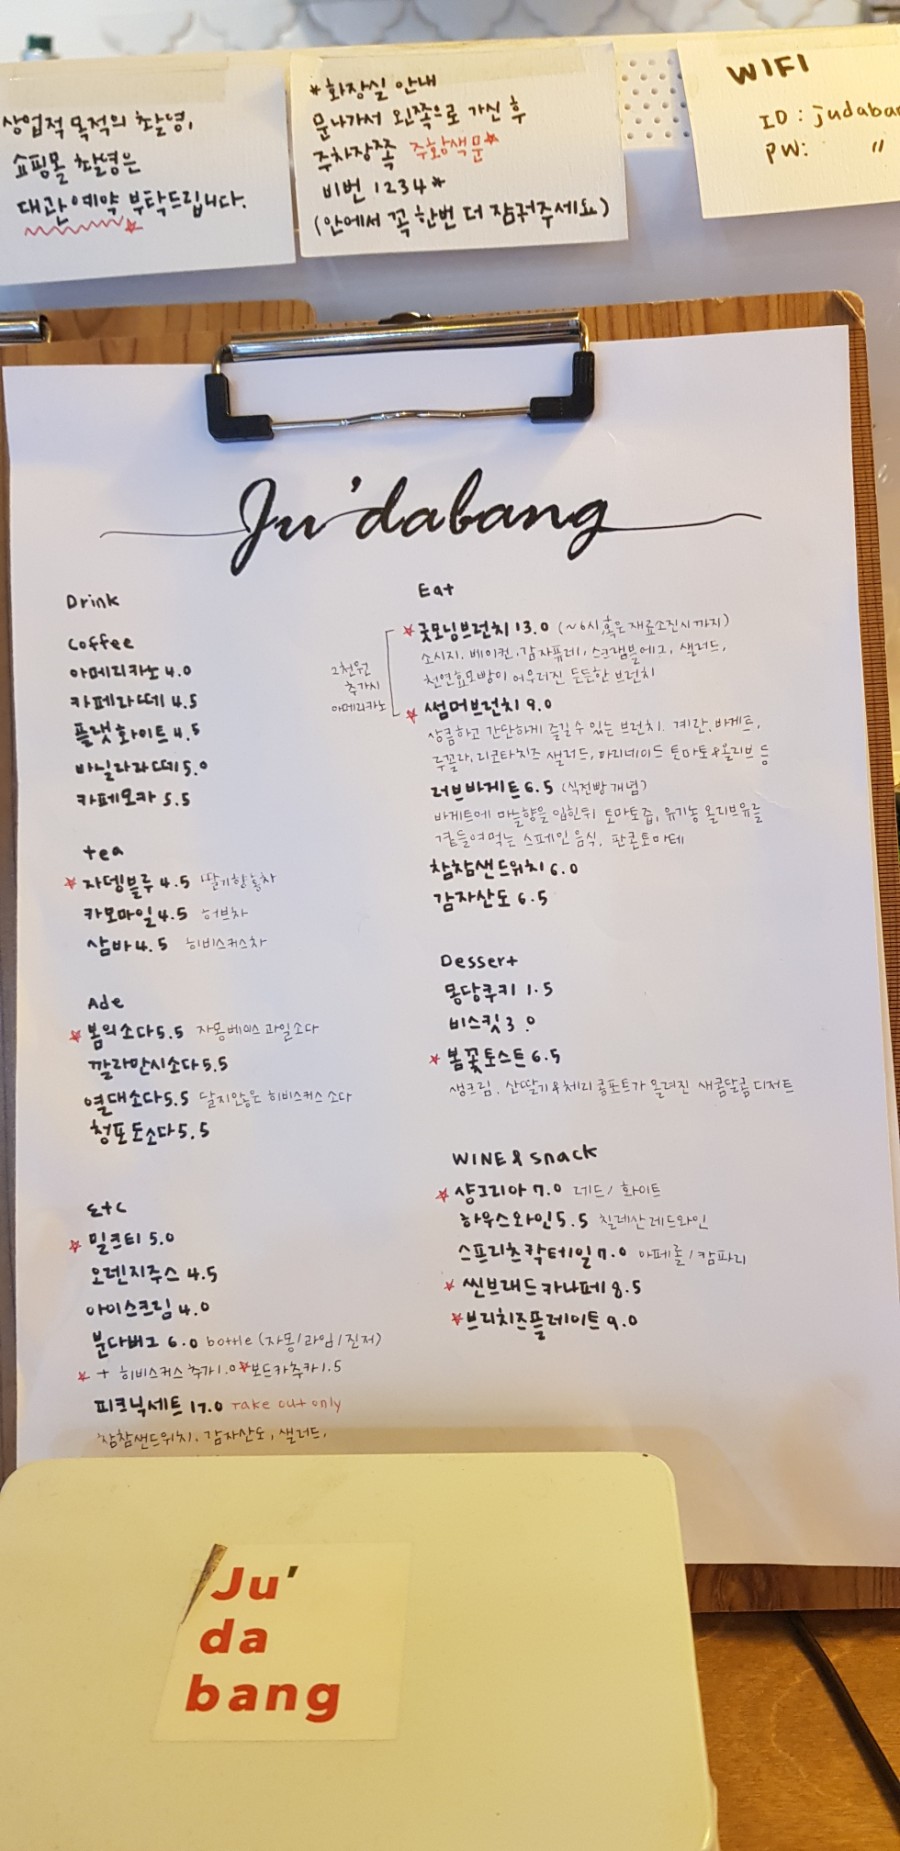 상업적 목적의 촬영,
쇼핑몰 촬영은
대관예약 부탁드립니다.
*화장실 안내
문나가서 왼쪽으로 가신 후
주차장쪽 주황색문
비번 1234*
(안에서 꼭 한번 더 잠궈주세요)
WIFI
ID: judaban
PW: "
Ju'dabang
Drink
Coffee
아메리카노 4.0
카페라떼 4.5
플랫화이트 4.5
바닐라라떼 5.0
카페모카 5.5
tea
자뎅블루 4.5 딸기향홍차
카모마일 4.5 허브차
삼바 4.5 히비스커스차
Ade
봄의소다 5.5 자몽베이스 과일소다
깔라만시소다 5.5
열대소다 5.5 달지않은 히비스커스 소다
청포도소다 5.5
Etc
밀크티 5.0
오렌지주스 4.5
아이스크림 4.0
분다버그 6.0 bottle (자몽/라임/진저)
+ 히비스커스 추가 1.0 보드카추가 1.5
피크닉세트 17.0 Take out only
참참샌드위치, 감자산도, 샐러드,
Eat
굿모닝브런치 13.0 (~6시,혹은 재료소진시까지)
소시지, 베이컨, 감자퓨레, 스크램블에그, 샐러드,
천연효모빵이 어우러진 든든한 브런치
2천원
추가시
아메리카노
썸머브런치 9.0
상큼하고 간단하게 즐길 수 있는 브런치. 계란, 바게트,
루꼴라, 리코타치즈 샐러드, 마리네이드 토마토&올리브 등
러브바게트 6.5 (식전빵 개념)
바게트에 마늘향을 입힌뒤 토마토즙, 유기농 올리브유를
곁들여먹는 스페인 음식, 판콘토마테
참참샌드위치 6.0
감자산도 6.5
Dessert
몽당쿠키 1.5
비스킷 3.0
봄꽃토스트 6.5
생크림, 산딸기&체리 콤포트가 올려진 새콤달콤 디저트
WINE & snack
샹그리아 7.0 레드/화이트
하우스와인 5.5 칠레산 레드와인
스프리츠칵테일 7.0 아페롤/캄파리
씬브래드카나페 8.5
브리치즈플레이트 9.0
Ju'
da
bang